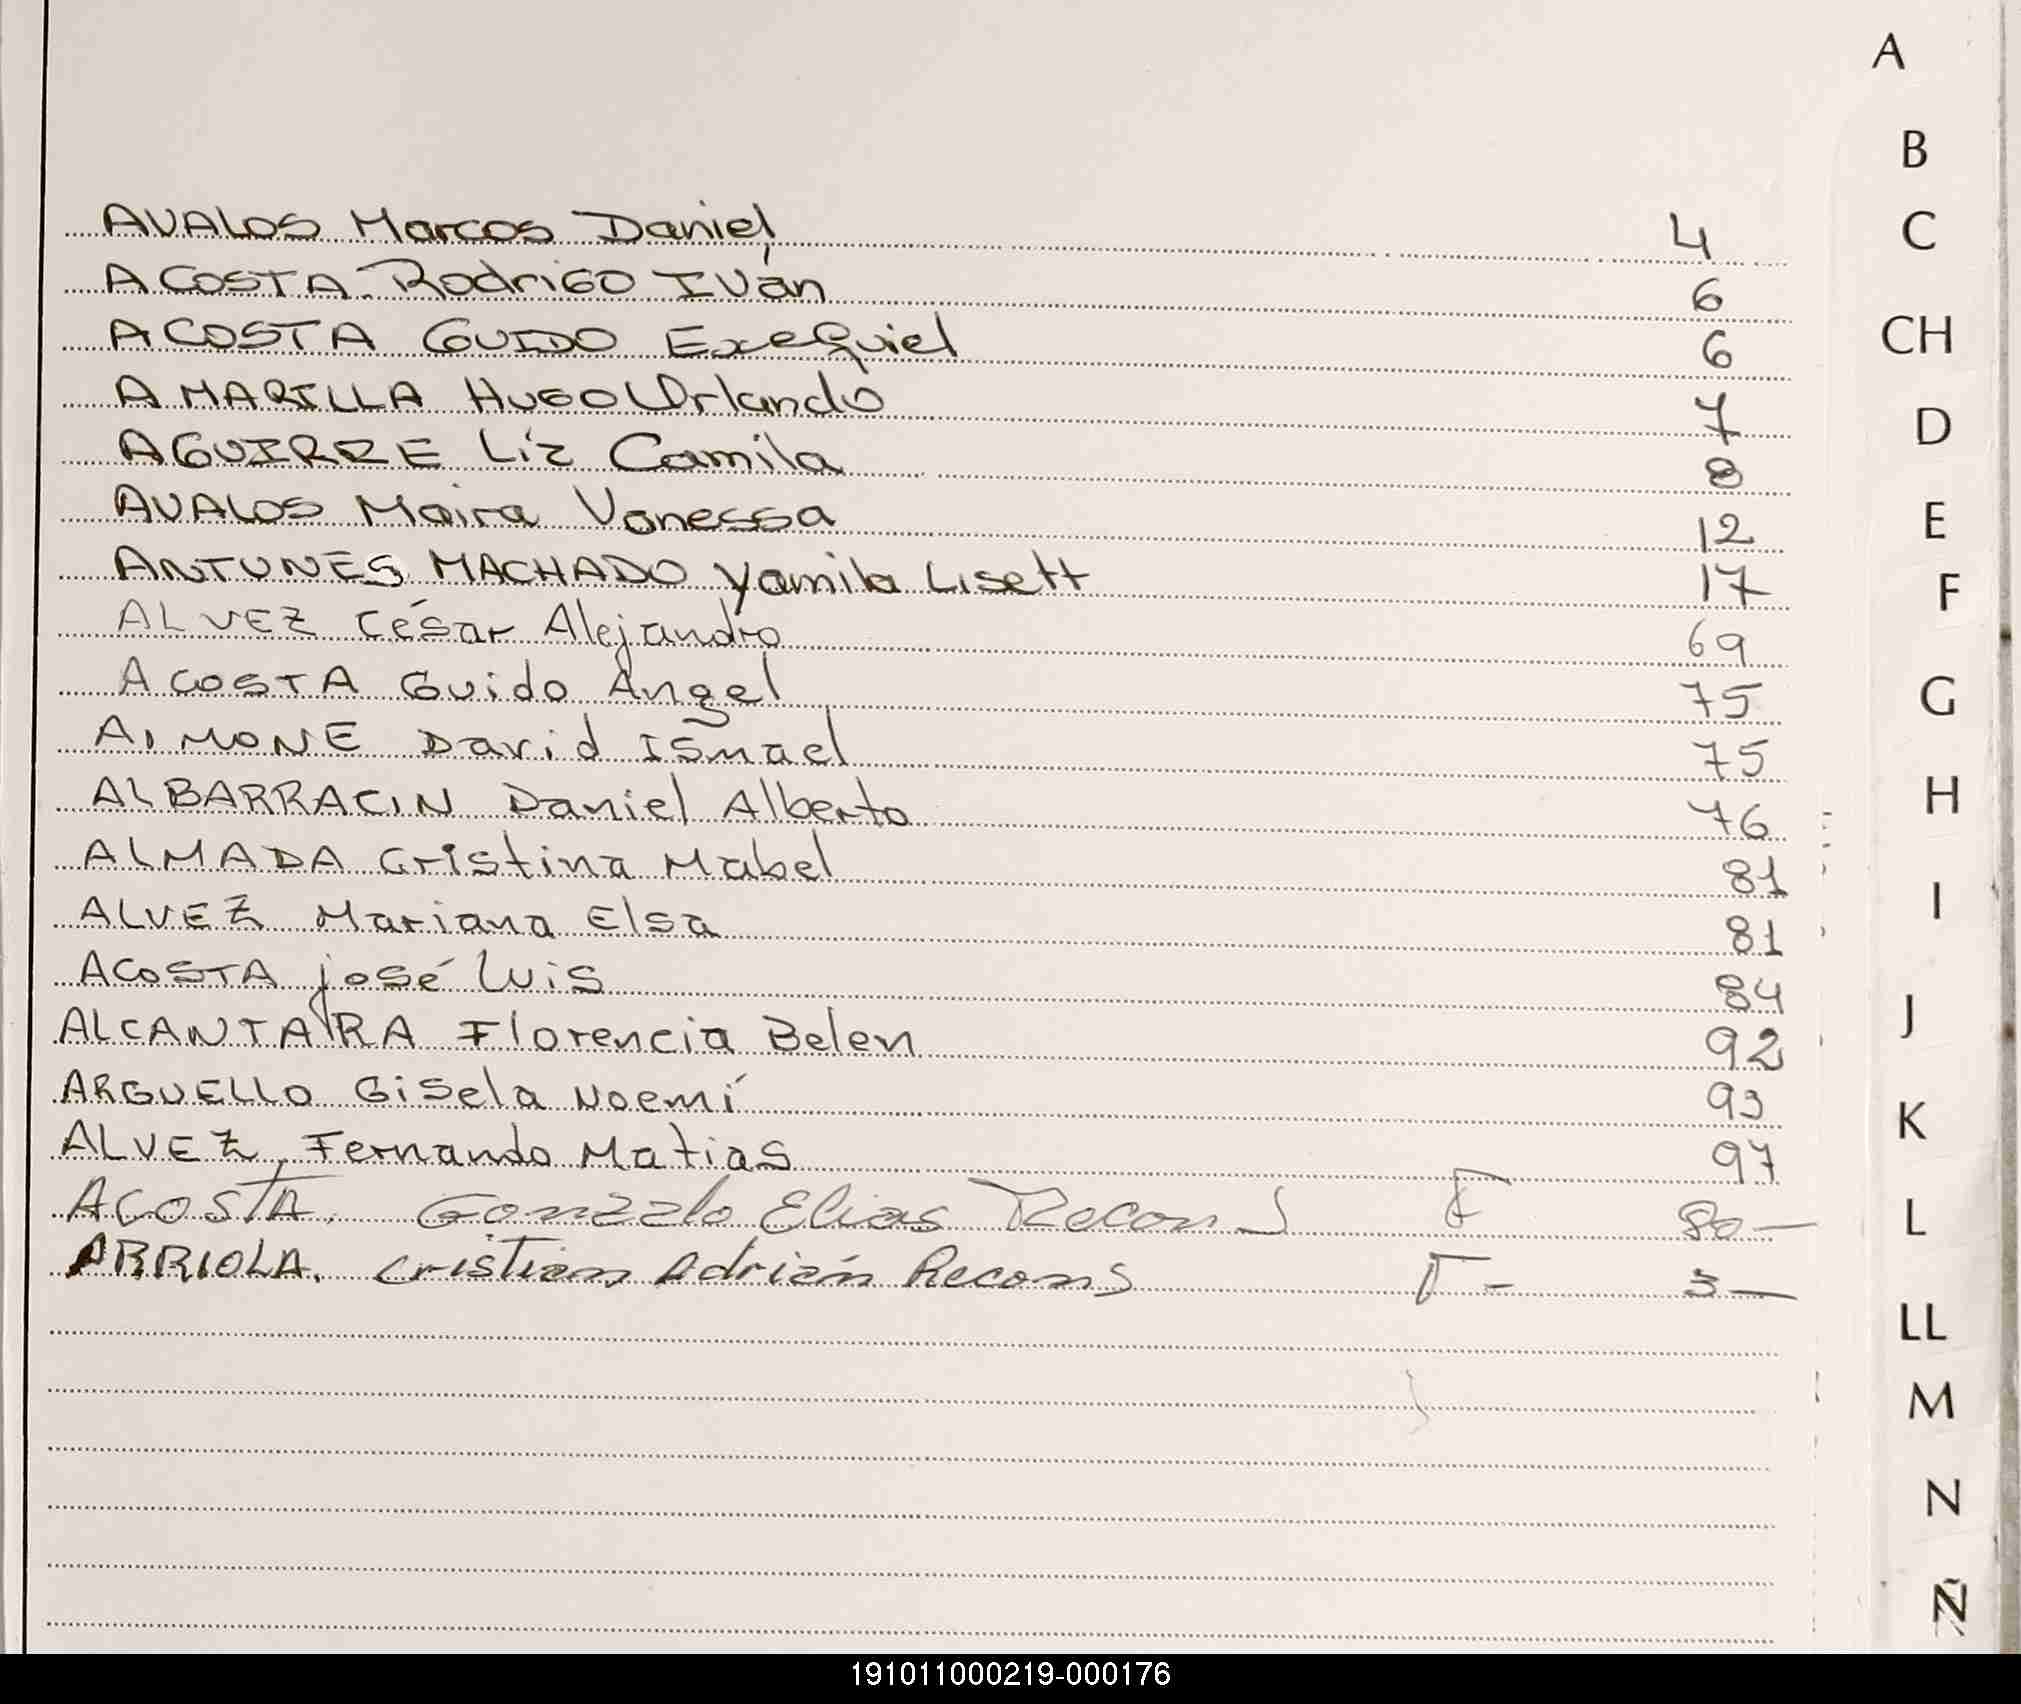 AVALOS Marcos Daniel 4
ACOSTA Rodrigo Iván 6
ACOSTA GUIDO Exequiel 6
AMARILLA HUGO Orlando 7
AGUIRRE Liz Camila 8
AVALOS Maira Vanessa 12
ANTUNES MACHADO Yamila Lisett 17
ALVEZ César Alejandro 69
ACOSTA Guido Angel 75
AIMONE David Ismael 75
ALBARRACIN Daniel Alberto 76
ALMADA Cristina Mabel 81
ALVEZ Mariana Elsa 81
ACOSTA José Luis 84
ALCANTARA Florencia Belen 92
ARGUELLO Gisela Noemí 93
ALVEZ, Fernando Matias 97
ACOSTA. Gonzalo Elias Recon 80-
ARRIOLA. Cristian Adrián Recons 3-
A
B
C
CH
D
E
F
G
H
I
J
K
L
LL
M
N
Ñ
191011000219-000176